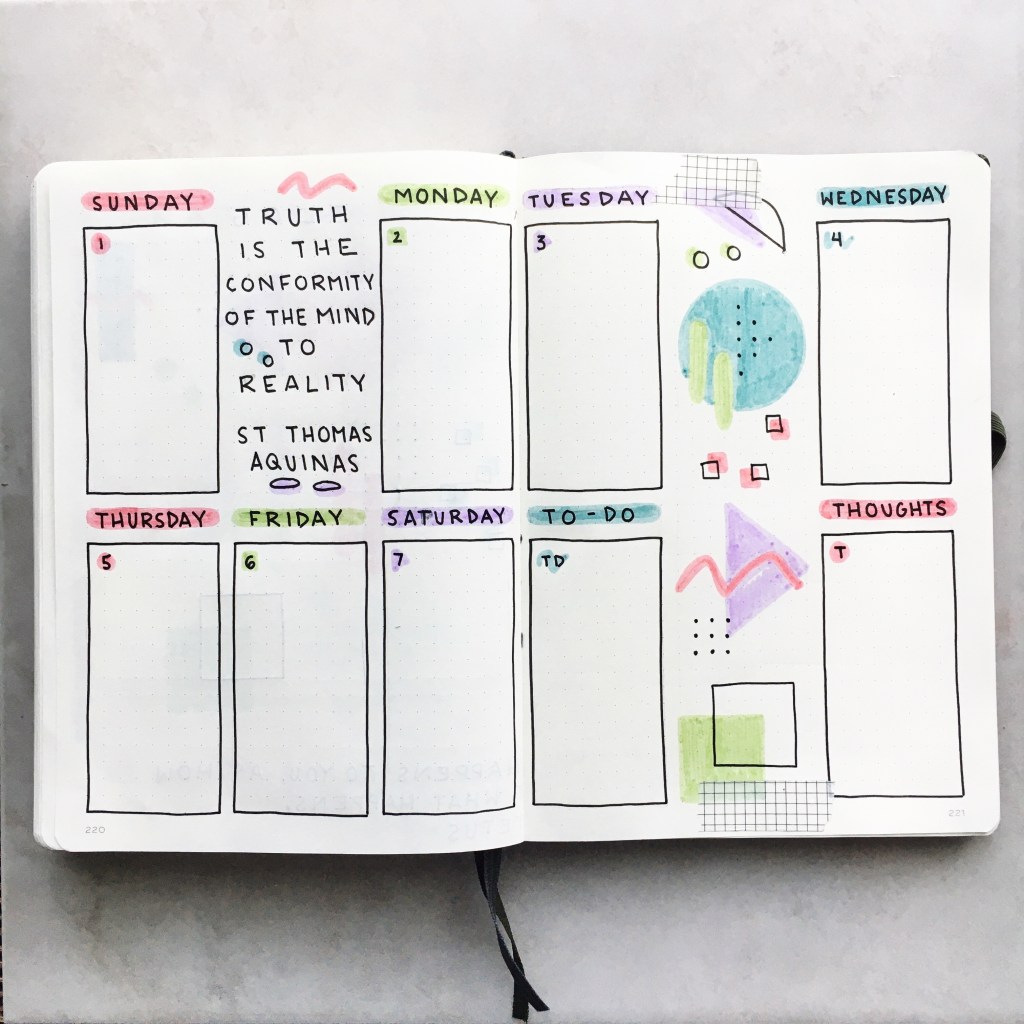 SUNDAY
1
TRUTH
IS THE
CONFORMITY
OF THE MIND
TO
REALITY
ST THOMAS
AQUINAS
MONDAY
2
TUESDAY
3
WEDNESDAY
4
THURSDAY
5
FRIDAY
6
SATURDAY
7
TO-DO
TD
THOUGHTS
T
220
221